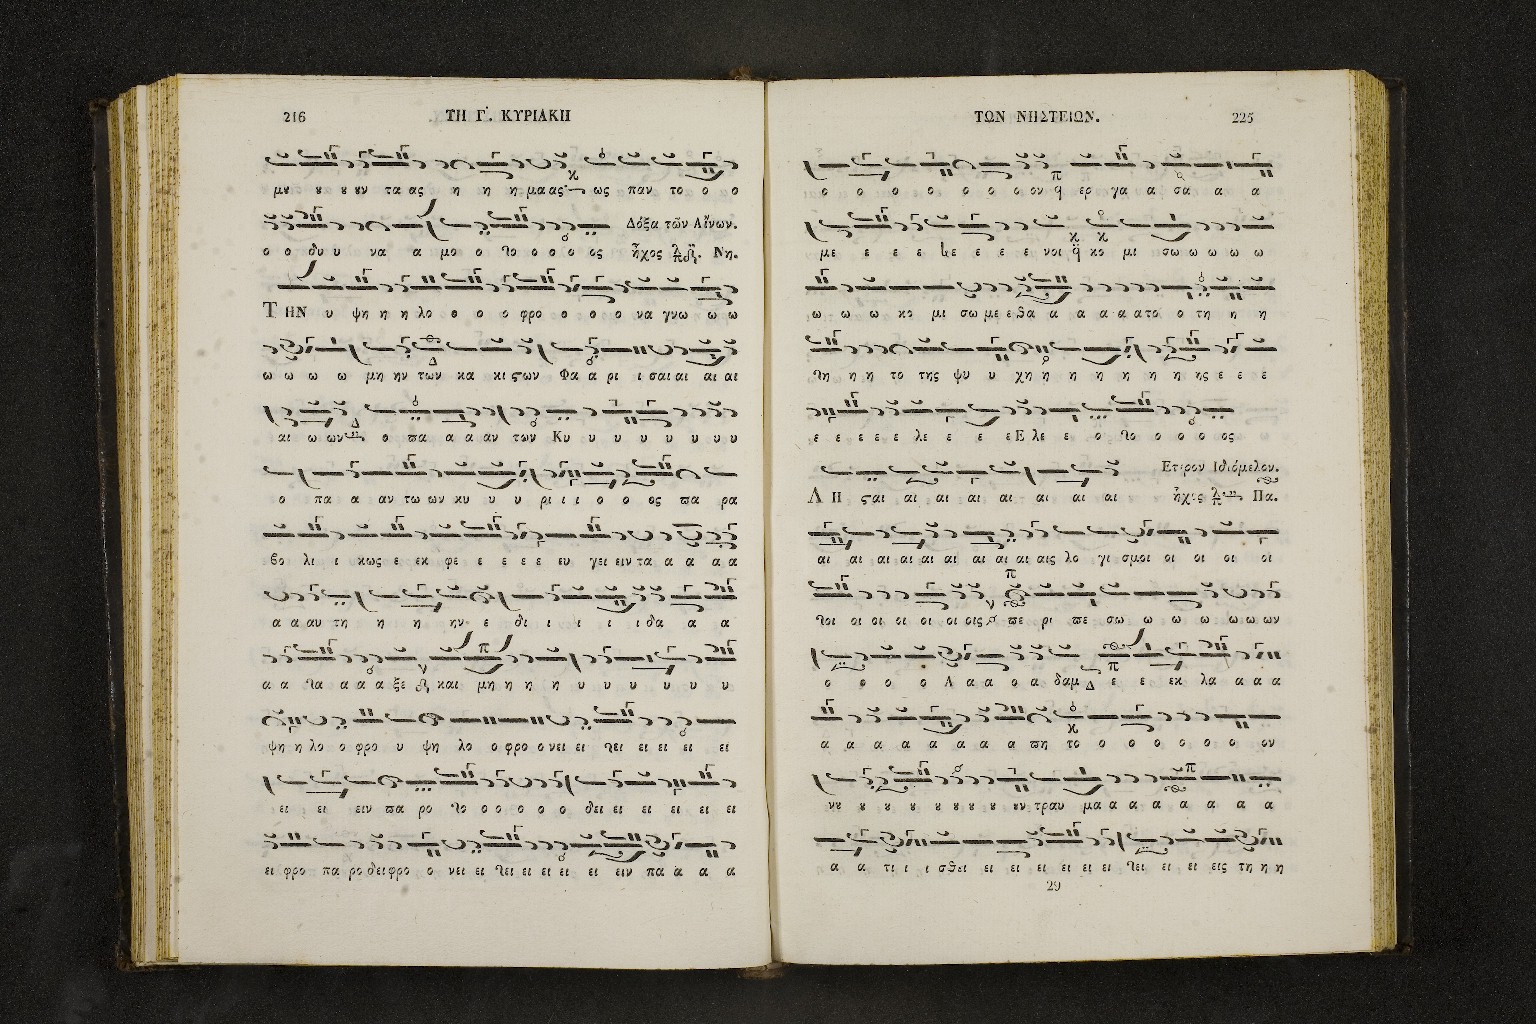 216 ΤΗ Γ΄. ΚΥΡΙΑΚΗ
μȣ ȣ ȣ ȣν τα ας η η η μα ας ως παν το ο ο
ο ο δυ υ να α μο ο ο ο ο ο ος Δόξα τῶν Αἴνων. ἦχος Νη.
ΤΗΝ υ ψη η η λο ο ο ο φρο ο ο ο να γνω ω ω
ω ω ω ω μη ην των κα κι ϛων Φα α ρι ι σαι αι αι αι
αι ω ων ο πα α α αν των Κυ υ υ υ υ υ υ υ
ο πα α αν τω ων κυ υ υ ρι ι ι ο ο ος πα ρα
βο λι ι κως ε εκ φε ε ε ε ε ευ γει ειν τα α α α α
α α αυ τη η η ην ε δι ι ι ι ι δα α α
α α α α α ξε και μη η η η υ υ υ υ υ υ υ
ψη η λο ο φρο υ ψη λο ο φρο ο νει ει ει ει ει ει ει
ει ει ειν πα ρο ο ο ο ο ο δει ει ει ει ει ει
ει φρο πα ρο δει φρο ο νει ει ει ει ει ει ει ειν πα α α α
ΤΩΝ ΝΗΣΤΕΙΩΝ. 225
ο ο ο ο ο ο ο ον ερ γα α σα α α
με ε ε ε ε ε ε ε νοι κο μι σω ω ω ω ω
ω ω ω κο μι σω με ε θα α α α α α το ο τη η η
η η το της ψυ υ χη η η η η η η ης ε ε ε
ε ε ε ε ε λε ε ε ε Ε λε ε ο ο ο ο ο ος
Ετερον Ιδιόμελον.
ΛΗ ϛαι αι αι αι αι αι αι αι ἦχος Πα.
αι αι αι αι αι αι αι αι αι αις λο γι σμοι οι οι οι οι
οι οι οι οι οι οις πε ρι πε σω ω ω ω ω ω ων
ο ο ο ο Α α α ο α δαμ ε ε εκ λα α α α
α α α α α α α α πη το ο ο ο ο ο ο ον
νȣ ȣ ȣ ȣ ȣ ȣ ȣ ȣν τραυ μα α α α α α α α
α α τι ι ι σθει ει ει ει ει ει ει ει ει ει εις τη η η
29